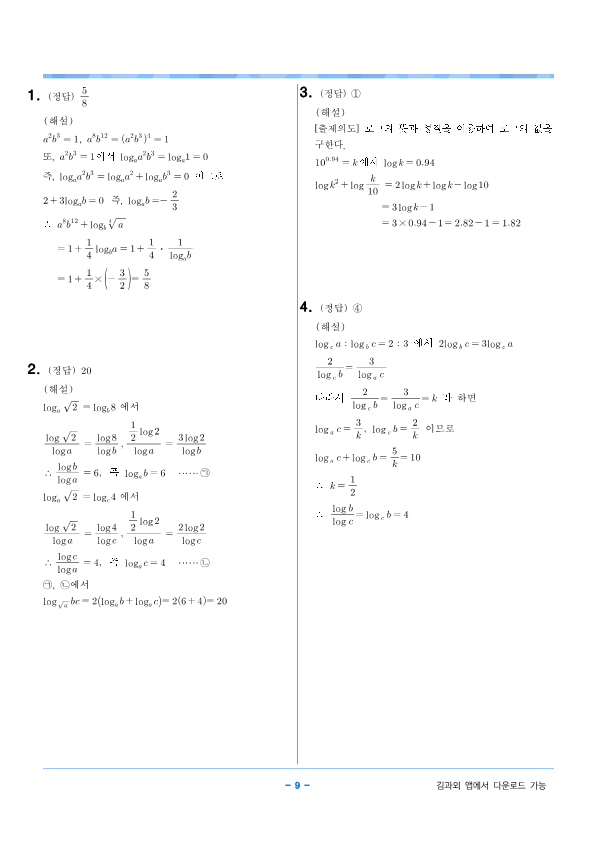 1. (정답) 5/8
(해설)
a²b³ = 1, a⁸b¹² = (a²b³)⁴ = 1
또, a²b³ = 1에서 logₐa²b³ = logₐ1 = 0
즉, logₐa²b³ = logₐa² + logₐb³ = 0
2 + 3logₐb = 0 즉, logₐb = − 2/3
∴ a⁸b¹² + log_b ⁴√a
= 1 + 1/4 log_b a = 1 + 1/4 · 1/logₐb
= 1 + 1/4 × (− 3/2) = 5/8
2. (정답) 20
(해설)
logₐ √2 = log_b 8 에서
log √2 / log a = log 8 / log b , 1/2 log 2 / log a = 3 log 2 / log b
∴ log b / log a = 6, 즉 logₐ b = 6 ⋯⋯ ㉠
logₐ √2 = log_c 4 에서
log √2 / log a = log 4 / log c , 1/2 log 2 / log a = 2 log 2 / log c
∴ log c / log a = 4, 즉 logₐ c = 4 ⋯⋯ ㉡
㉠, ㉡에서
log_√a bc = 2(logₐ b + logₐ c) = 2(6 + 4) = 20
3. (정답) ①
(해설)
[출제의도] 로그의 뜻과 성질을 이용하여 로그의 값을
구한다.
10^0.94 = k에서 log k = 0.94
log k² + log k/10 = 2 log k + log k − log 10
= 3 log k − 1
= 3 × 0.94 − 1 = 2.82 − 1 = 1.82
4. (정답) ④
(해설)
log_c a : log_b c = 2 : 3 에서 2 log_b c = 3 log_c a
2 / log_c b = 3 / logₐ c
따라서 2 / log_c b = 3 / logₐ c = k 라 하면
logₐ c = 3/k , log_c b = 2/k 이므로
logₐ c + log_c b = 5/k = 10
∴ k = 1/2
∴ log b / log c = log_c b = 4
- 9 -
김과외 앱에서 다운로드 가능